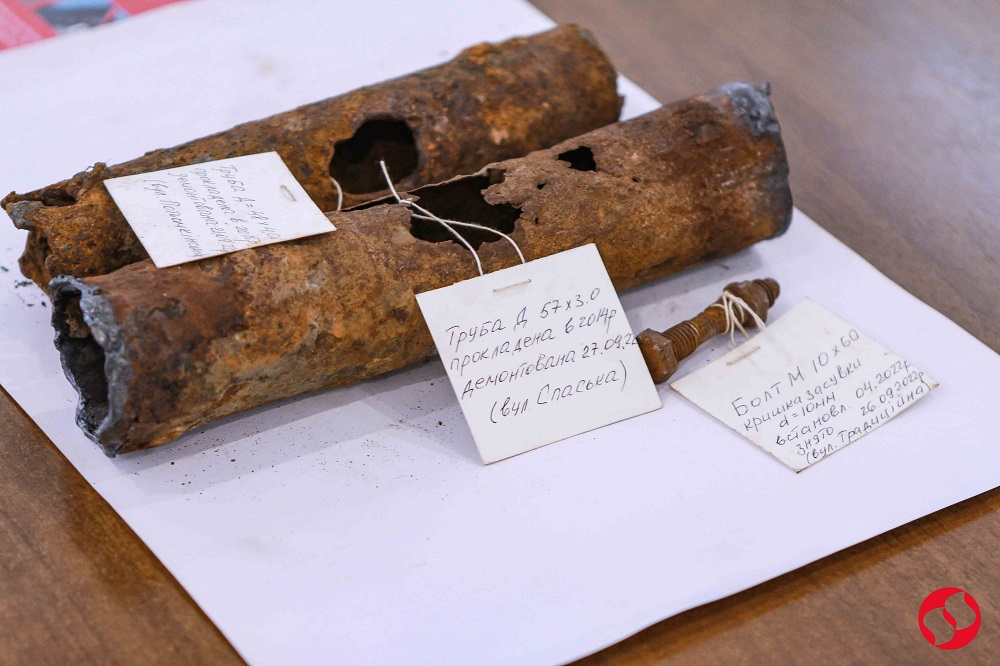 Труба д=48
прокладена в 20
демонтована
(вул. Потьомкінську
Труба Д 57х3.0
прокладена в 2014р
демонтована 27.09.22
(вул Спаська)
Болт М 10х60
кришка засувки
d=10мм
встановл. 04.2022р
знято 26.09.2022р
(вул. Традиційна